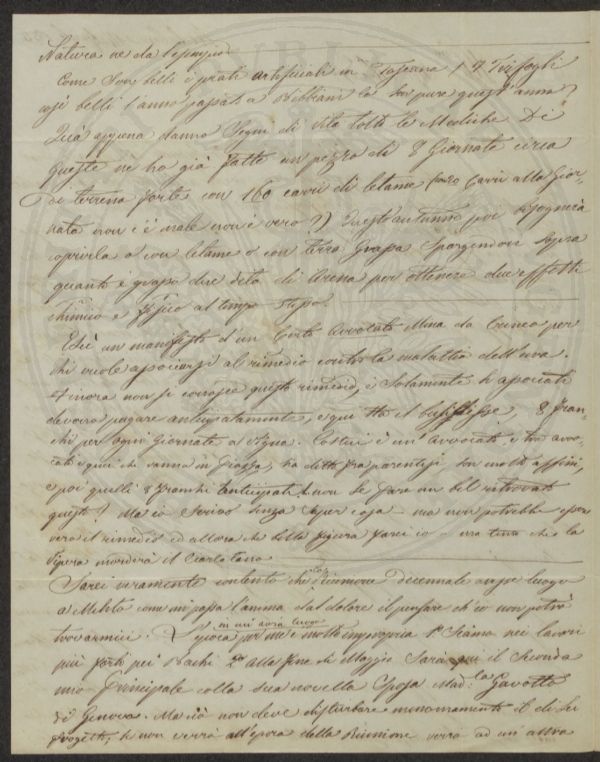 Natura ne da l'esempio.
Come son belli i prati artificiali in Toscana! I Trifogli
così belli l'anno passato a Bibbiani lo son pure quest'anno?
Quà appena danno segni di vita tutte le Mediche. Di
queste ne ho già fatte un pezzo di 8 Giornate circa
di terreno forte con 160 carri di letame (20 Carri alla Gior-
nata non c'è male non è vero?) Quest'autunno poi bisognerà
coprirla o con letame o con terra grassa spargendovi sopra
quanto è grosso due dita di Arena per ottenere due effetti
chimico e fisico al tempo stesso.
Escì un manifesto d'un Certo Avvocato Mina da Cuneo per
chi vuole associarsi al rimedio contro la malattia dell'uva.
Finora non si conosce questo rimedio, e solamente li associati
devono pagare anticipatamente, e qui sta il busillesse, 8 Fran-
chi per ogni Giornata a Vigna. Costui è un Avvocato, e tra avvo-
cati e quei che vanno in piazza, ha detto fra parentesi son molto affini,
e poi quelli 8 franchi anticipati! non le pare un bel ritrovato
questo? Ma io scrivo senza saper cosa — ma non potrebbe essere
vero il rimedio ed allora che bella figura farei io — ma temo che la
Vipera morderà il Ciarlatano
Sarei veramente contento che la Riunione decennale avesse luogo
a Meleto come mi passa l'anima dal dolore il pensare ch'io non potrò
trovarmici. L'epoca in cui avrà luogo per me è molto impropria 1° Siamo nei lavori
più forti pei Bachi 2° alla fine di Maggio sarà qui il Secondo
mio Principale colla sua novella Sposa Mad.la Gavotto
di Genova. Ma ciò non deve disturbare menomamente il di Lei
progetto, se non verrò all'epoca della Riunione verrò ad un'altra